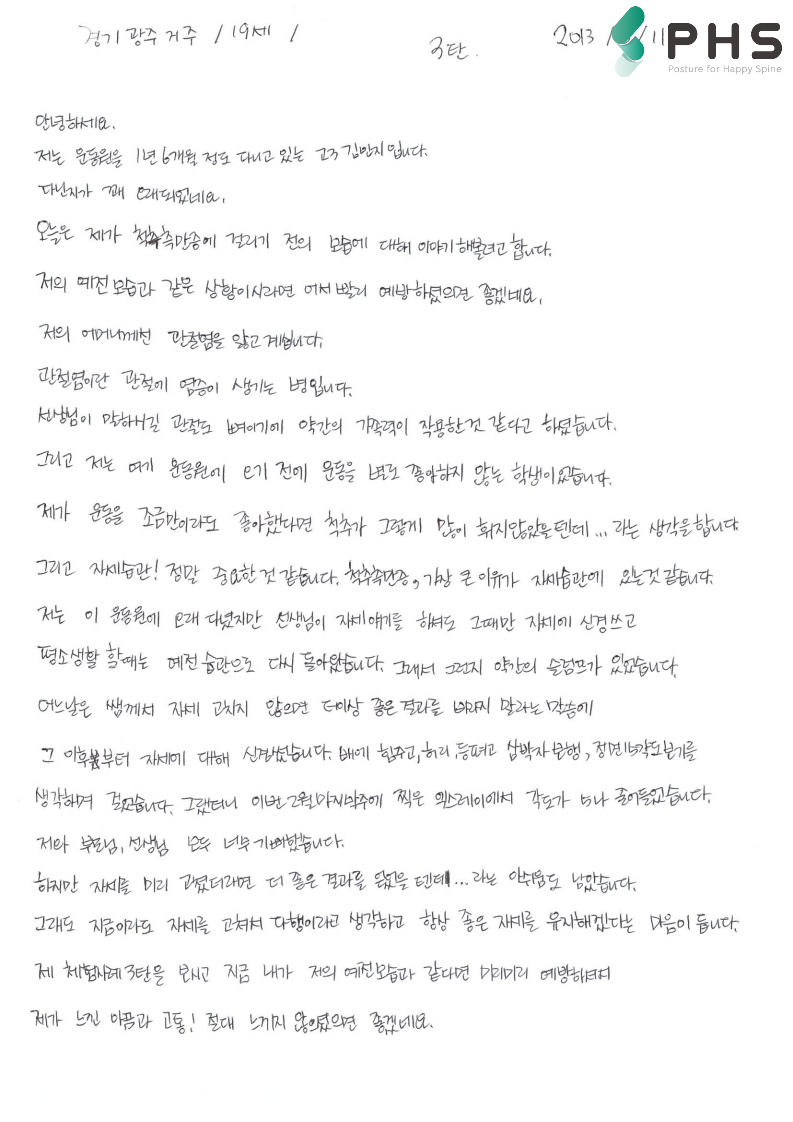 경기 광주 거주 / 19세 /
3탄.
2013 / 11
PHS
Posture for Happy Spine
안녕하세요.
저는 운동원을 1년 6개월 정도 다니고 있는 고3 김민지입니다.
다닌지가 꽤 오래되었네요.
오늘은 제가 척추측만증에 걸리기 전의 모습에 대해 이야기해볼려고 합니다.
저의 예전모습과 같은 상황이시라면 어서 빨리 예방하셨으면 좋겠네요.
저의 어머니께선 관절염을 앓고계십니다.
관절염이란 관절에 염증이 생기는 병입니다.
선생님이 말하시길 관절도 뼈이기에 약간의 가족력이 작용한것 같다고 하셨습니다.
그리고 저는 여기 운동원에 오기 전에 운동을 별로 좋아하지 않는 학생이었습니다.
제가 운동을 조금만이라도 좋아했다면 척추가 그렇게 많이 휘지않았을텐데... 라는 생각을 합니다
그리고 자세습관! 정말 중요한것 같습니다. 척추측만증, 가장 큰 이유가 자세습관에 있는것 같습니다.
저는 이 운동원에 오래 다녔지만 선생님이 자세얘기를 하셔도 그때만 자세에 신경쓰고
평소생활 할때는 예전 습관으로 다시 돌아왔습니다. 그래서 그런지 약간의 슬럼프가 있었습니다.
어느날은 쌤께서 자세 고치지 않으면 더이상 좋은결과를 바라지 말라는 말씀에
그 이후부터 자세에 대해 신경썼습니다. 배에 힘주고, 허리, 등펴고 삼박자보행, 정면15각도보기를
생각하며 걸었습니다. 그랬더니 이번 2월마지막주에 찍은 엑스레이에서 각도가 5나 줄어들었습니다.
저와 부모님, 선생님 모두 너무기뻐했습니다.
하지만 자세를 미리 고쳤더라면 더 좋은 결과를 얻었을 텐데... 라는 아쉬움도 남았습니다.
그래도 지금이라도 자세를 고쳐서 다행이라고 생각하고 항상 좋은 자세를 유지해겠다는 마음이 듭니다.
제 체험사례3탄을 보시고 지금 내가 저의 예전모습과 같다면 미리미리 예방하셔서
제가 느낀 아픔과 고통! 절대 느끼지 않으셨으면 좋겠네요.